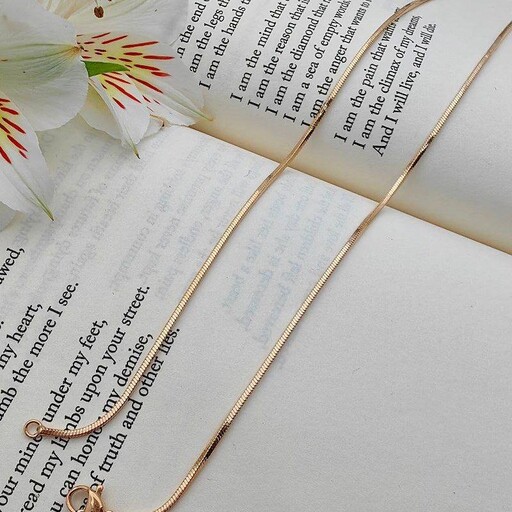 in the end
I am the legs th
I am the hands
I am the mind that
I am the reason that i
I am the diamond that
I am a sea of empty words
I am the anger that want to
I am the pain that wants
I am the climax of my dreams
And I will live, and I will die.
awed,
my heart,
mb the more I see.
your mine under my feet,
read my limbs upon your street.
you can hone my demise,
of truth and other lies.